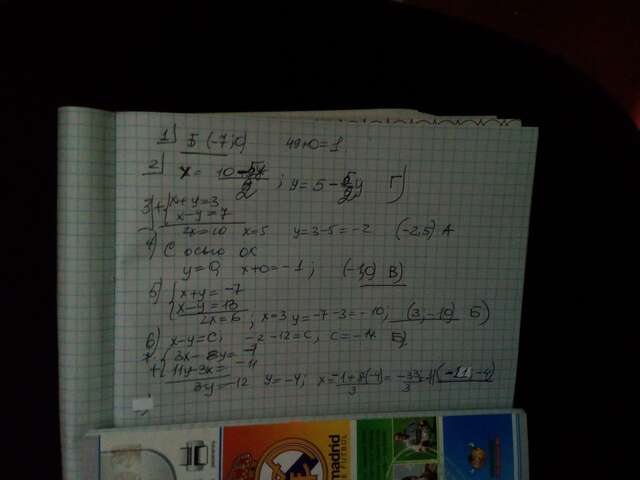 1) Б (-7;0) 49+0=1
2) x = 10-5y/2 ; y = 5 - 5/2 y Г)
3) + { x+y=3
x-y=7
2x=10 x=5 y=3-5=-2 (-2,5) A
4) С осью ох
y=0, x+0=-1; (-1,0) В)
5) { x+y=-7
x-y=13
2x=6; x=3 y=-7-3=-10; (3,-10) Б)
6) x-y=c; -2-12=c, c=-14 Б)
7. + { 3x-8y=-1
11y-3x=-11
3y=-12 y=-4; x= -1+8(-4)/3 = -33/3 = -11 (-11;-4)
madrid
DE FUTBOL